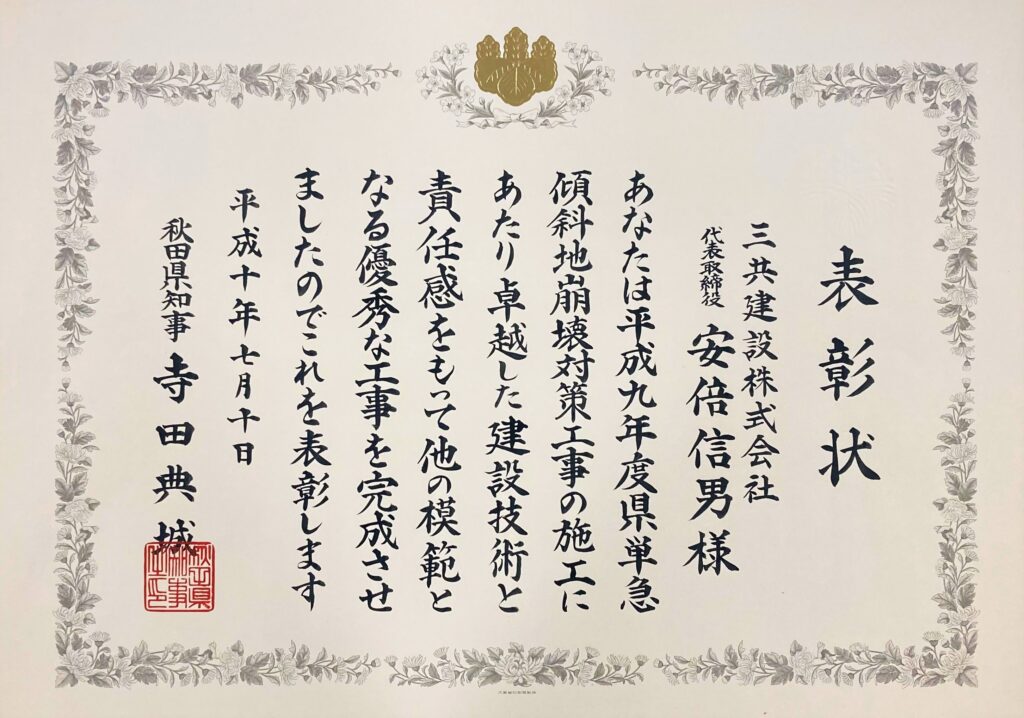 表彰状
三共建設株式会社
代表取締役 安倍信男様
あなたは平成九年度県単急
傾斜地崩壊対策工事の施工に
あたり卓越した建設技術と
責任感をもって他の模範と
なる優秀な工事を完成させ
ましたのでこれを表彰します
平成十年七月十日
秋田県知事 寺田典城